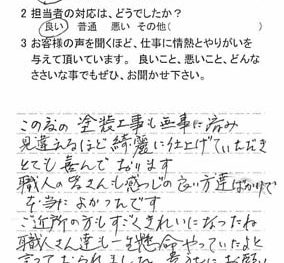 2 担当者の対応は、どうでしたか？
良い 普通 悪い その他(　　　　)
3 お客様の声を聞くほど、仕事に情熱とやりがいを
与えて頂いています。 良いこと、悪いこと、どんな
ささいな事でもぜひ、お聞かせ下さい。
この度の 塗装工事も無事に済み
見違えるほど 綺麗に仕上げていただき
とても喜んでおります
職人の皆さんも感じの良い方達ばかりで
本当に よかったんです
ご近所の方もすごくきれいになったね
職人さん達も一生懸命やっていたよと
言っておられました